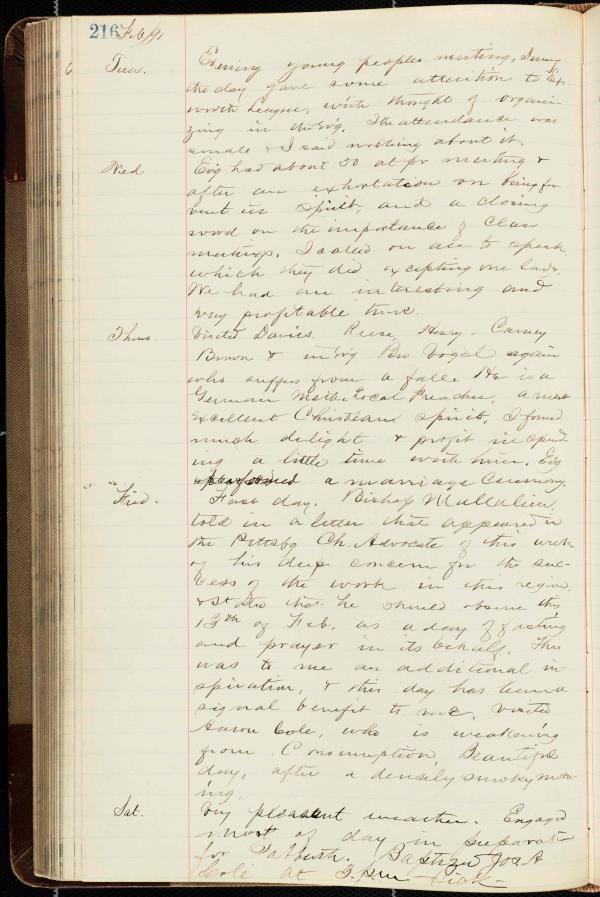 216 Feb/91
Tues. Evening young peoples meeting. During
the day gave some attention to Ep-
worth League, with thought of organi-
zing in the Evg. The attendance was
small & I said nothing about it.
Wed Evg had about 50 at pr meeting &
after an exhortation on being fer
vent in spirit, and a closing
word on the importance of Class
meetings. I called on all to speak
which they did excepting one lady.
We had an interesting and
very profitable time.
Thurs. Visited Davies. Reese, Henry. Carney
Brown & in Evg Bro Vogal again
who suffers from a fall. He is a
German Meth Local Preacher, a most
excellent Christian spirit, I found
much delight & profit in spend
ing a little time with him. Evg
performed a marriage ceremony.
" " Frid. Fast day. Bishop Mallalieu
told in a letter that appeared in
the Pittsbg Ch. Advocate of this week
of his deep concern for the suc-
cess of the work in this region
& stated that he should observe this
13th of Feb. as a day of fasting
and prayer in its behalf. This
was to me an additional in
spiration, & this day has been a
signal benefit to me. Visited
Aaron Cole, who is weakening
from Consumption. Beautiful
day, after a densely smoky morn
ing.
Sat. Very pleasant weather. Engaged
most of day in preparation
for Sabbath. Baptized Jos A
Cole at 3. P.m. Sick